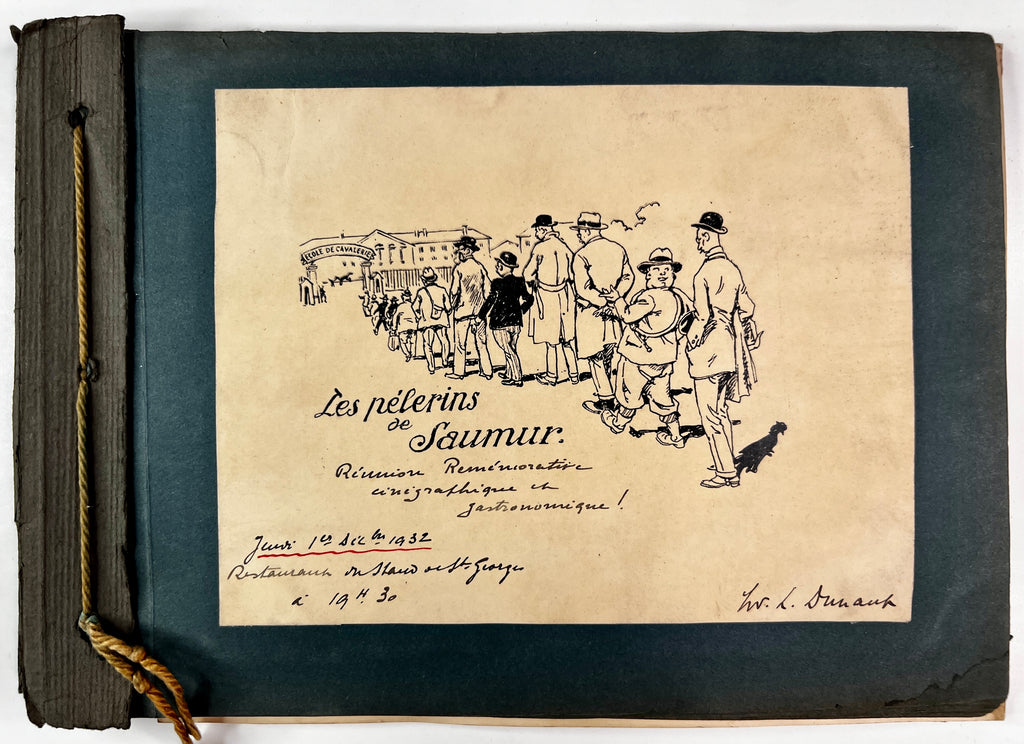 ECOLE DE CAVALERIE
Les pélerins
de
Saumur.
Réunion Remémorative
cinégraphique et
gastronomique !
Jeudi 1er Déc bre 1932
Restaurant du Stand de St Georges
à 19 H 30
L. Dunant